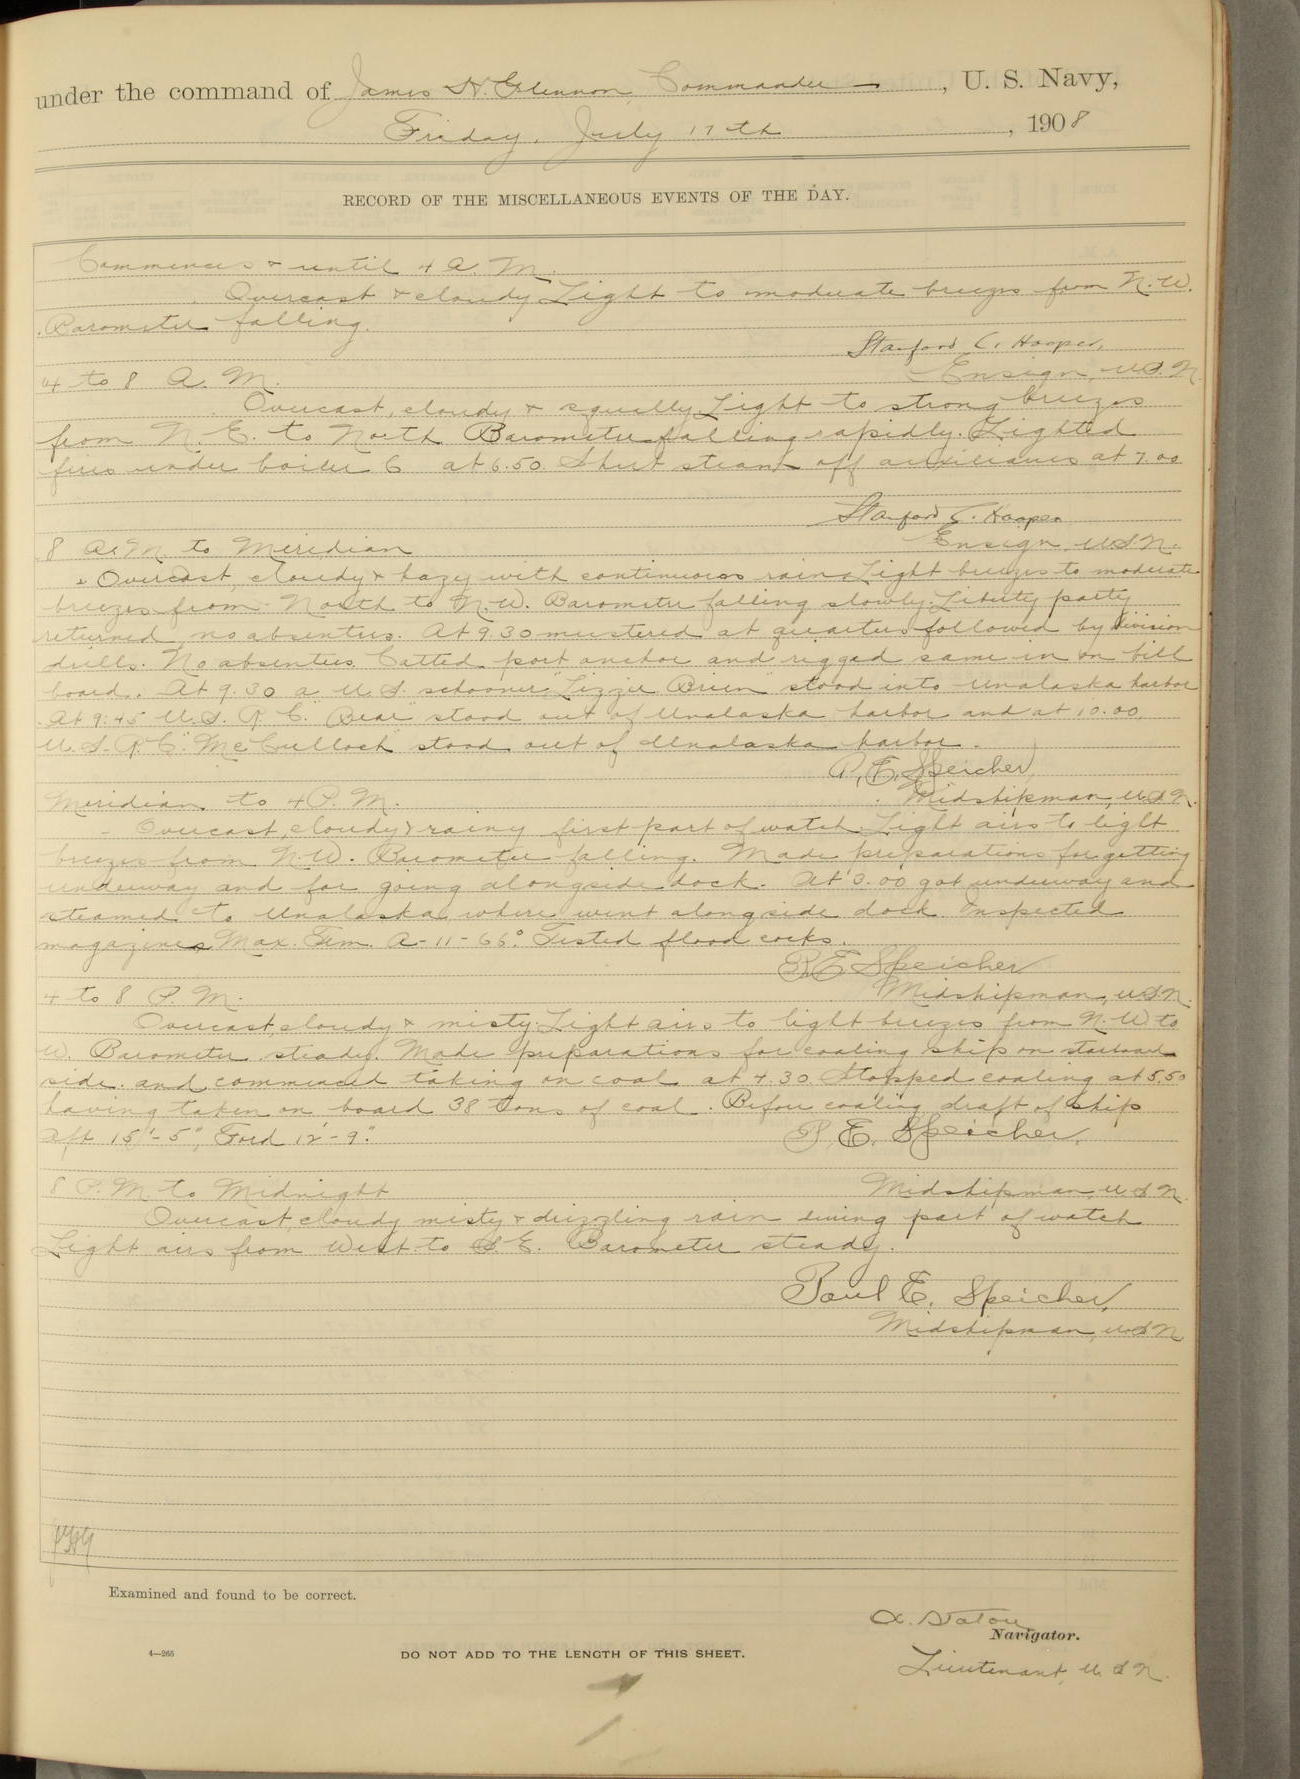 under the command of James H. Glennon, Commander, U. S. Navy,
Friday, July 17th, 1908
RECORD OF THE MISCELLANEOUS EVENTS OF THE DAY.
Commences & until 4 A. M.
Overcast & cloudy Light to moderate breezes from N.W.
Barometer falling.
Stanford C. Hooper,
Ensign, U.S.N.
4 to 8 A. M.
Overcast, cloudy & squally Light to strong breezes
from N. E. to North Barometer falling rapidly. Lighted
fires under boiler 6 at 6.50. Shut steam off auxiliaries at 7.00
Stanford C. Hooper
Ensign, U.S.N.
8 A.M. to Meridian
Overcast, cloudy & hazy with continuous rain. Light breezes to moderate
breezes from North to N.W. Barometer falling slowly. Liberty party
returned no absentees. At 9.30 mustered at quarters followed by division
drills. No absentees. Catted port anchor and rigged same in on bill
board. At 9.30 a U.S. schooner "Lizzie Brien" stood into Unalaska harbor
At 9:45 U.S. R.C. "Bear" stood out of Unalaska harbor and at 10.00
U.S.R.C. "McCulloch" stood out of Unalaska harbor.
P. E. Speicher,
Midshipman, U.S.N.
Meridian to 4 P. M.
Overcast, cloudy & rainy first part of watch. Light airs to light
breezes from N.W. Barometer falling. Made preparations for getting
underway and for going alongside dock. At 3.00 got underway and
steamed to Unalaska, where went alongside dock. Inspected
magazines Max. Tem. A-11-66°. Tested flood cocks.
P. E. Speicher
Midshipman, U.S.N.
4 to 8 P. M.
Overcast, cloudy & misty. Light airs to light breezes from N.W to
W. Barometer steady. Made preparations for coaling ship on starboard
side and commenced taking on coal at 4.30. Stopped coaling at 5.50
having taken on board 38 tons of coal. Before coaling draft of ship
Aft 15'-5", Ford 12'-9".
P. E. Speicher,
Midshipman, U.S.N.
8 P. M. to Midnight
Overcast, cloudy misty & drizzling rain during part of watch
Light airs from West to S.E. Barometer steady.
Paul E. Speicher,
Midshipman, U.S.N.
Examined and found to be correct.
A. Staton
Navigator.
Lieutenant, U.S.N.
4—265
DO NOT ADD TO THE LENGTH OF THIS SHEET.